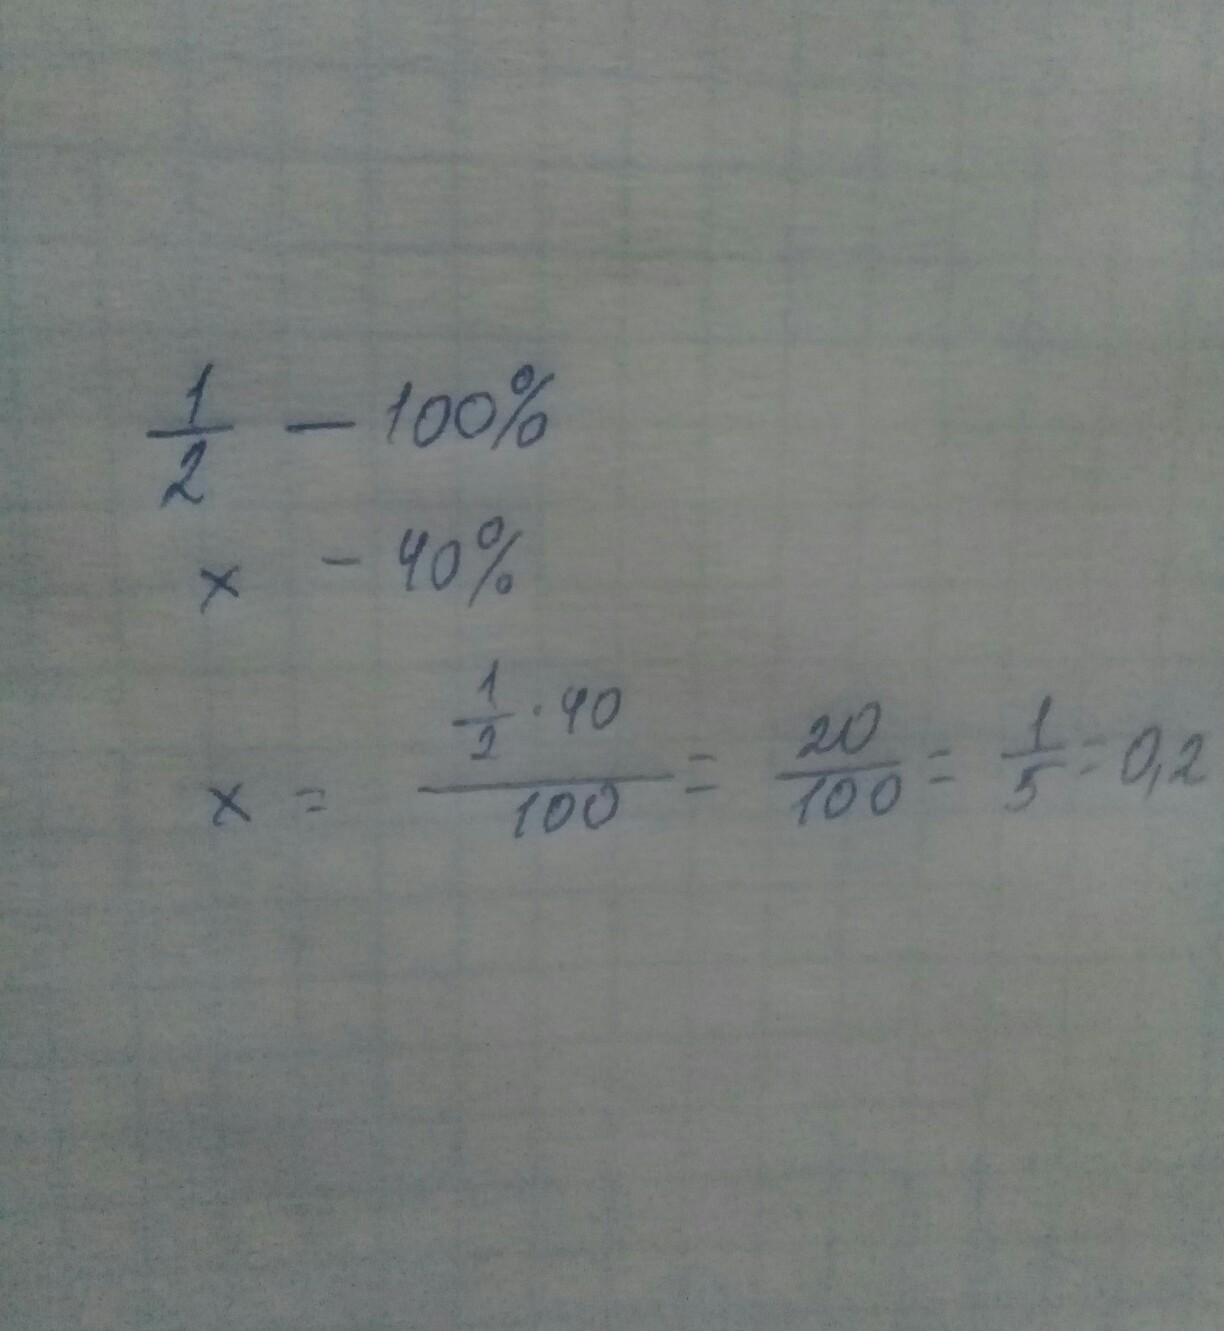 1/2 — 100%
x - 40%
x = (1/2 · 40)/100 = 20/100 = 1/5 = 0,2